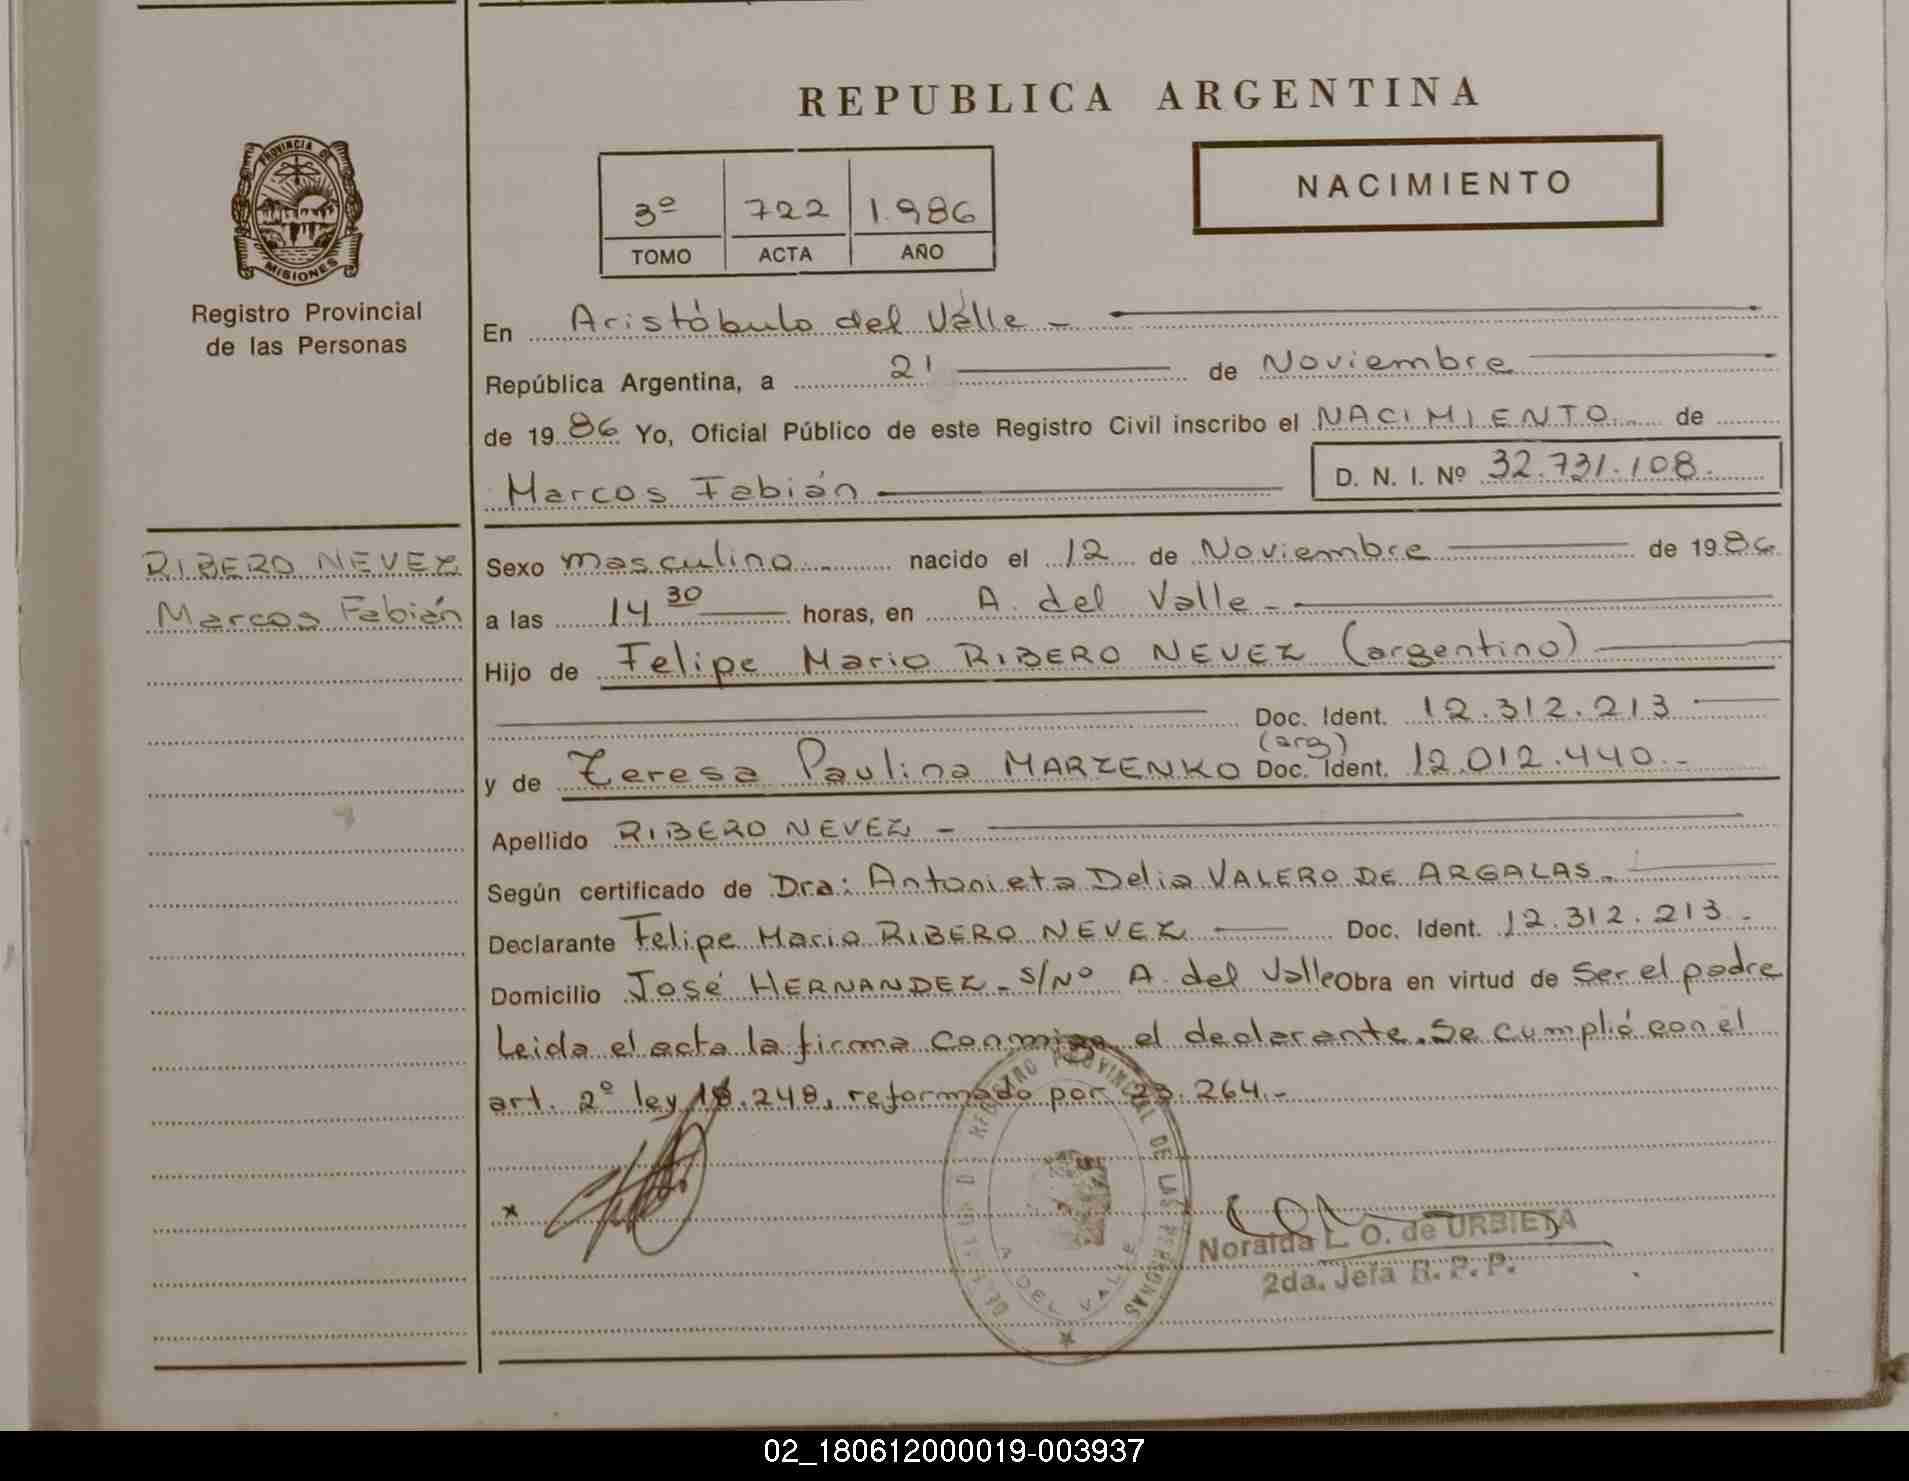 REPUBLICA ARGENTINA
PROVINCIA DE
MISIONES
Registro Provincial
de las Personas
3º 722 1.986
TOMO ACTA AÑO
NACIMIENTO
En Aristóbulo del Valle -
República Argentina, a 21 de Noviembre
de 19 86 Yo, Oficial Público de este Registro Civil inscribo el NACIMIENTO de
Marcos Fabián D. N. I. Nº 32.731.108.
RIBERO NEVEZ
Marcos Fabián
Sexo masculino - nacido el 12 de Noviembre de 1986
a las 14 30 horas, en A. del Valle -
Hijo de Felipe Mario RIBERO NEVEZ (argentino)
Doc. Ident. 12.312.213
(arg)
y de Teresa Paulina MARZENKO Doc. Ident. 12.012.440.-
Apellido RIBERO NEVEZ -
Según certificado de Dra: Antonieta Delia VALERO DE ARGALAS.
Declarante Felipe Mario RIBERO NEVEZ Doc. Ident. 12.312.213.-
Domicilio José HERNANDEZ - S/Nº A. del Valle Obra en virtud de ser el padre
Leida el acta la firma conmigo el declarante. Se cumplió con el
art. 2º ley 18.248, reformado por 23.264.-
REGISTRO PROVINCIAL DE LAS PERSONAS
A. DEL VALLE
Noraida L. O. de URBIETA
2da. Jefa R. P. P.
02_180612000019-003937